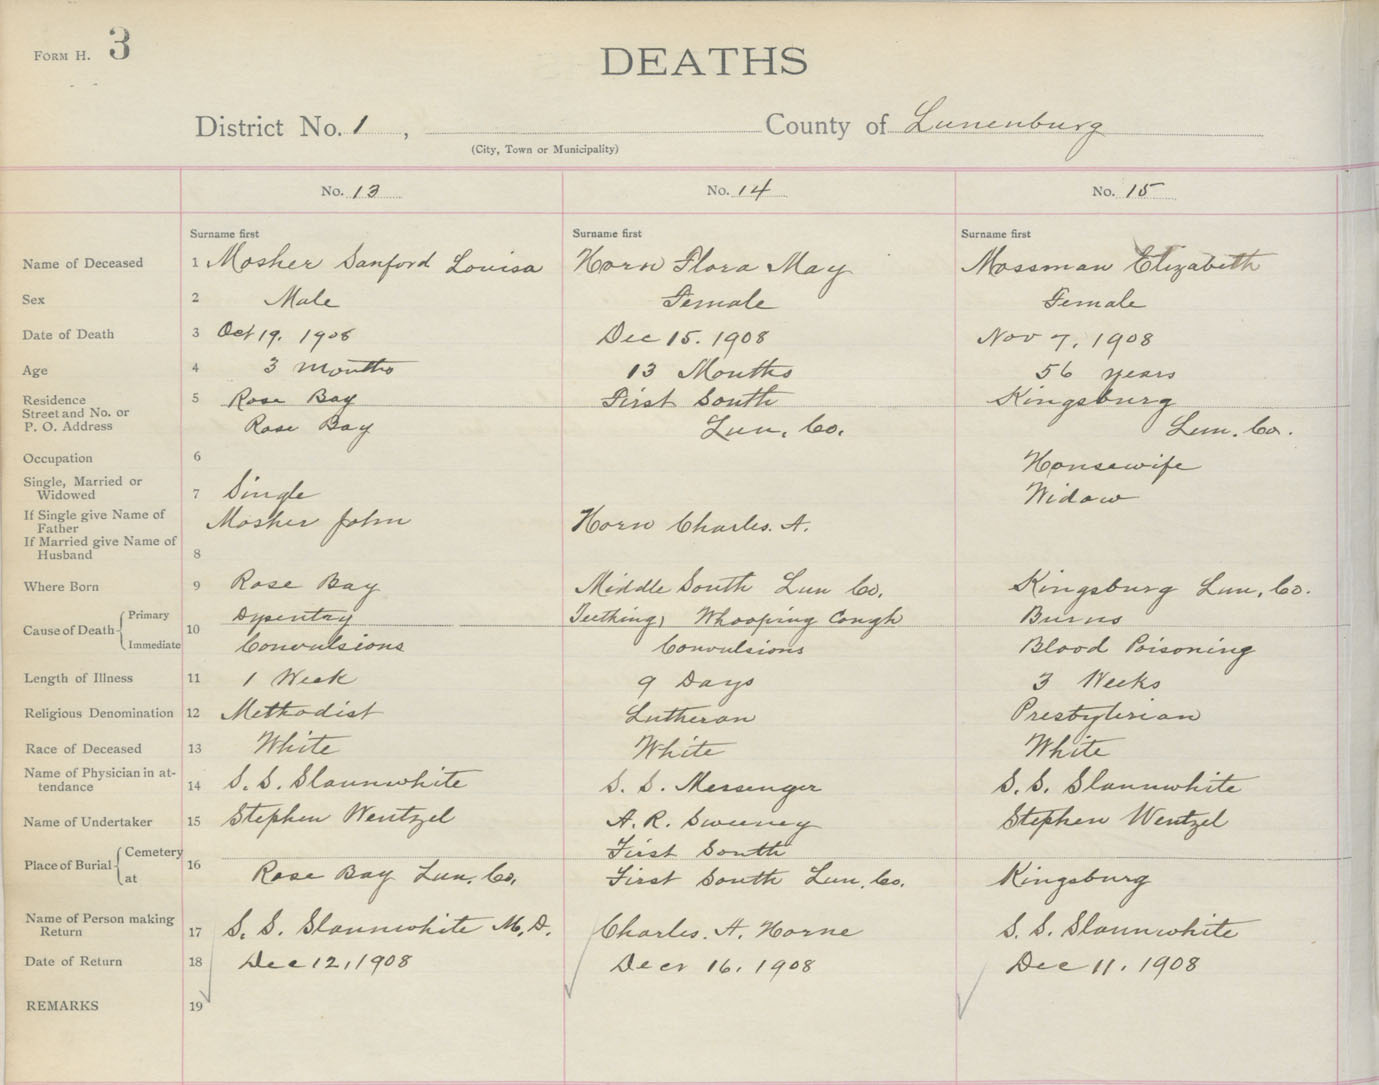 FORM H. 3
DEATHS
District No. 1 , County of Lunenburg
(City, Town or Municipality)
No. 13 No. 14 No. 15
Surname first Surname first Surname first
Name of Deceased 1 Mosher Sanford Louisa Horn Flora May Mossman Elizabeth
Sex 2 Male Female Female
Date of Death 3 Oct 19. 1908 Dec 15. 1908 Nov 7, 1908
Age 4 3 months 13 Months 56 years
Residence 5 Rose Bay First South Kingsburg
Street and No. or
P. O. Address Rose Bay Lun. Co. Lun. Co.
Occupation 6 Housewife
Single, Married or
Widowed 7 Single Widow
If Single give Name of
Father Mosher John Horn Charles. A.
If Married give Name of
Husband 8
Where Born 9 Rose Bay Middle South Lun Co. Kingsburg Lun, Co.
Cause of Death 10 Primary Dysentry Teething, Whooping Cough Burns
Immediate Convulsions Convulsions Blood Poisoning
Length of Illness 11 1 Week 9 Days 3 Weeks
Religious Denomination 12 Methodist Lutheran Presbyterian
Race of Deceased 13 White White White
Name of Physician in at-
tendance 14 S. S. Slaunwhite S. S. Messenger S. S. Slaunwhite
Name of Undertaker 15 Stephen Wentzel A. R. Sweeney Stephen Wentzel
Place of Burial 16 Cemetery First South
at Rose Bay Lun. Co. First South Lun. Co. Kingsburg
Name of Person making
Return 17 S. S. Slaunwhite M. D. Charles. A. Horne S. S. Slaunwhite
Date of Return 18 Dec 12, 1908 Decr 16. 1908 Dec 11. 1908
REMARKS 19